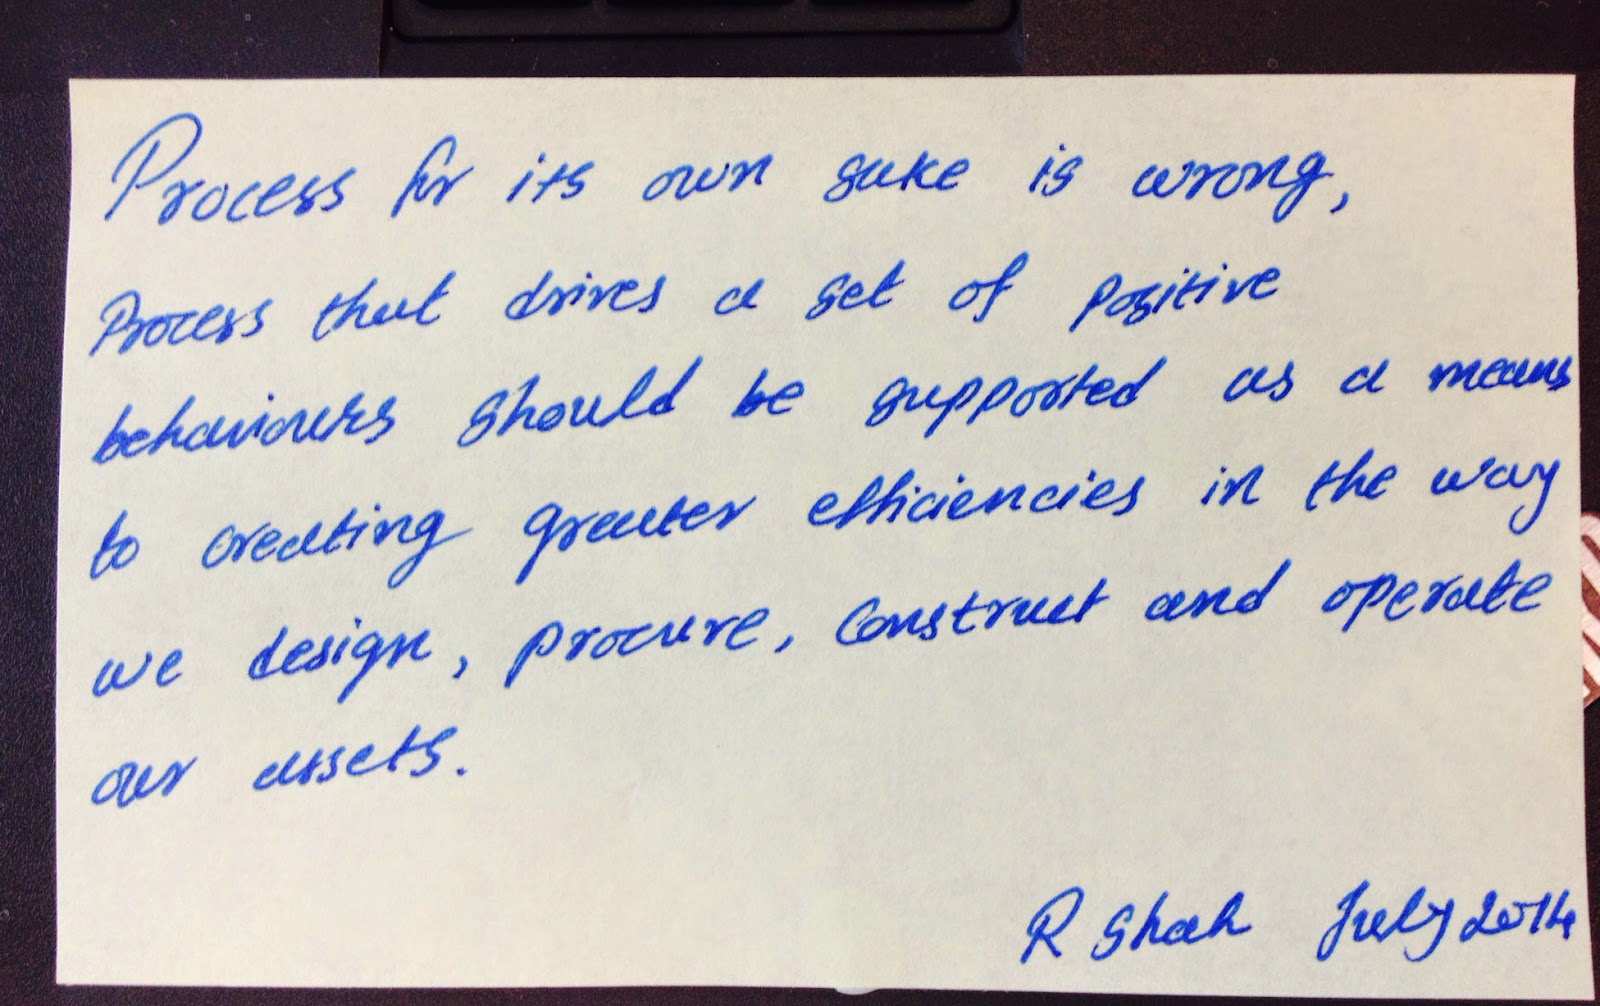 Process for its own sake is wrong,
Process that drives a set of positive
behaviours should be supported as a means
to creating greater efficiencies in the way
we design, procure, Construct and operate
our assets.
R Shah July 2014